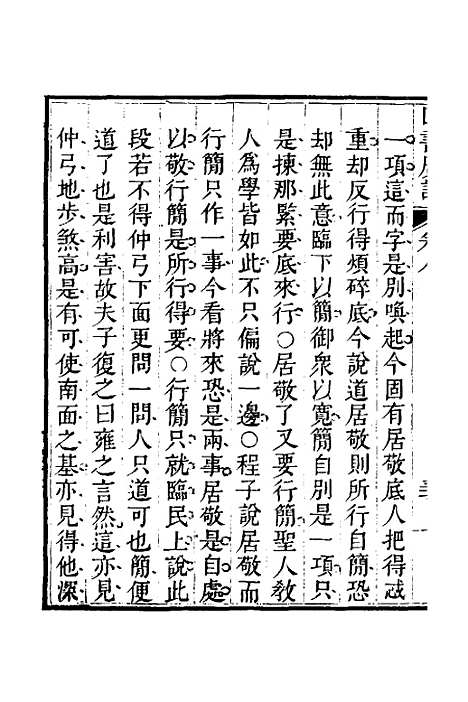 一項這而字是別喚起今固有居敬底人把得忒
重却反行得煩碎底今說道居敬則所行自簡恐
却無此意臨下以簡御衆以寬簡自別是一項只
是揀那緊要底來行〇居敬了又要行簡聖人敎
人爲學皆如此不只偏說一邊〇程子說居敬而
行簡只作一事今看將來恐是兩事居敬是自處
以敬行簡是所行得要〇行簡只就臨民上說此
段若不得仲弓下面更問一問人只道可也簡便
道了也是利害故夫子復之曰雍之言然這亦見
仲弓地步煞高是有可使南面之基亦見得他深